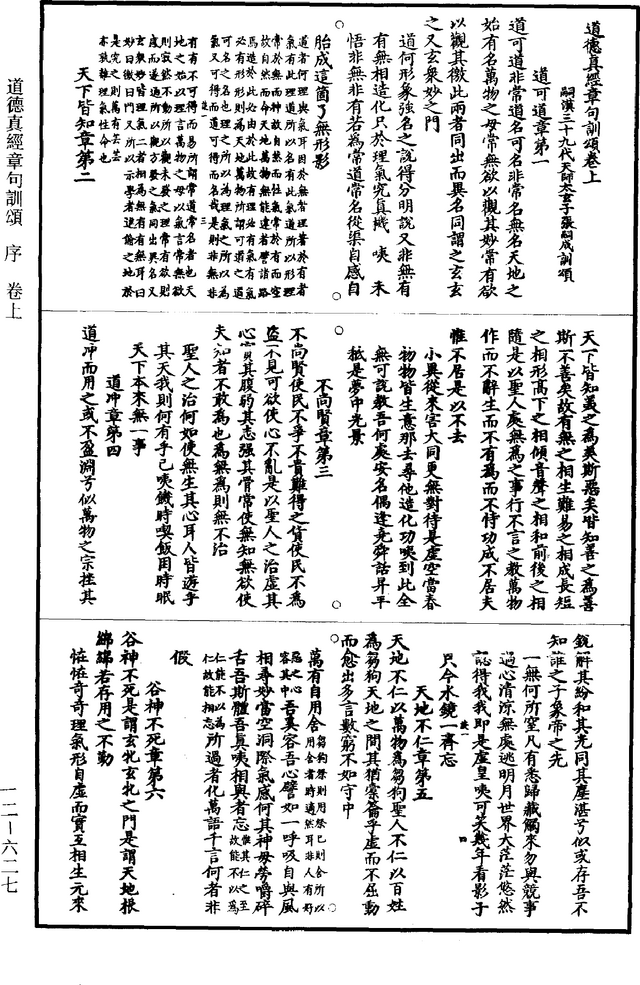 道德真經章句訓頌卷上
嗣漢三十九代天師太玄子張嗣成訓頌
道可道章第一
道可道非常道名可名非常名無名天地之
始有名萬物之母常無欲以觀其妙常有欲
以觀其徼此兩者同出而異名同謂之玄玄
之又玄衆妙之門
道何形象強名之說得分明說又非無有
有無相造化只於理氣究真機 咦 未
悟非無非有若為常道常名從渠自感自
胎成這箇了無形影
道者何理與氣耳因於無者理著於有者
氣有此理道所以名有此氣道所以形理
天下皆知章第二
天下皆知美之為美斯惡矣皆知善之為善
斯不善矣故有無之相生難易之相成長短
之相形高下之相傾音聲之相和前後之相
隨是以聖人處無為之事行不言之教萬物
作而不辭生而不有為而不恃功成不居夫
惟不居是以不去
小異從來害大同更無對待是虛空當春
物物皆生意那去尋他造化功咦到此全
無可說教吾何處安名偶逢堯舜話昇平
秪是夢中光景
不尚賢章第三
不尚賢使民不爭不貴難得之貨使民不為
盜不見可欲使心不亂是以聖人之治虛其
心實其腹弱其志强其骨常使無知無欲使
夫知者不敢為也為無為則無不治
聖人之治何如使無生其心耳人皆遊乎
其天我則何有乎己咦饑時喫飯困時眠
天下本來無一事
道冲章第四
道冲而用之或不盈淵兮似萬物之宗挫其
銳解其紛和其光同其塵湛兮似或存吾不
知誰之子象帝之先
一無何所窒凡有悉歸藏觸來勿與競事
過心清涼無處逃明月世界大茫茫悠然
認得我我即是虛皇咦可笑幾年看影子
只今水鏡一齊忘
天地不仁章第五
天地不仁以萬物為芻狗聖人不仁以百姓
為芻狗天地之間其猶橐籥乎虛而不屈動
而愈出多言數窮不如守中
萬有自用舍芻狗祭則用祭已則舍所以用舍者時適然耳非人有好
惡之心容其中吾莫容吾心譬如一呼吸自與風
相尋妙當空洞際氣感何其神毋勞嚼碎
舌吾斯體吾真咦相與者忘惟其仁之至故能不以為
仁能不以為仁故能相忘所過者化萬語千言何者非
假
谷神不死章第六
谷神不死是謂玄牝玄牝之門是謂天地根
綿綿若存用之不勤
怪怪奇奇理氣形自虛而實互相生元來
道德真經章句訓頌 序 卷上
一二—六二七